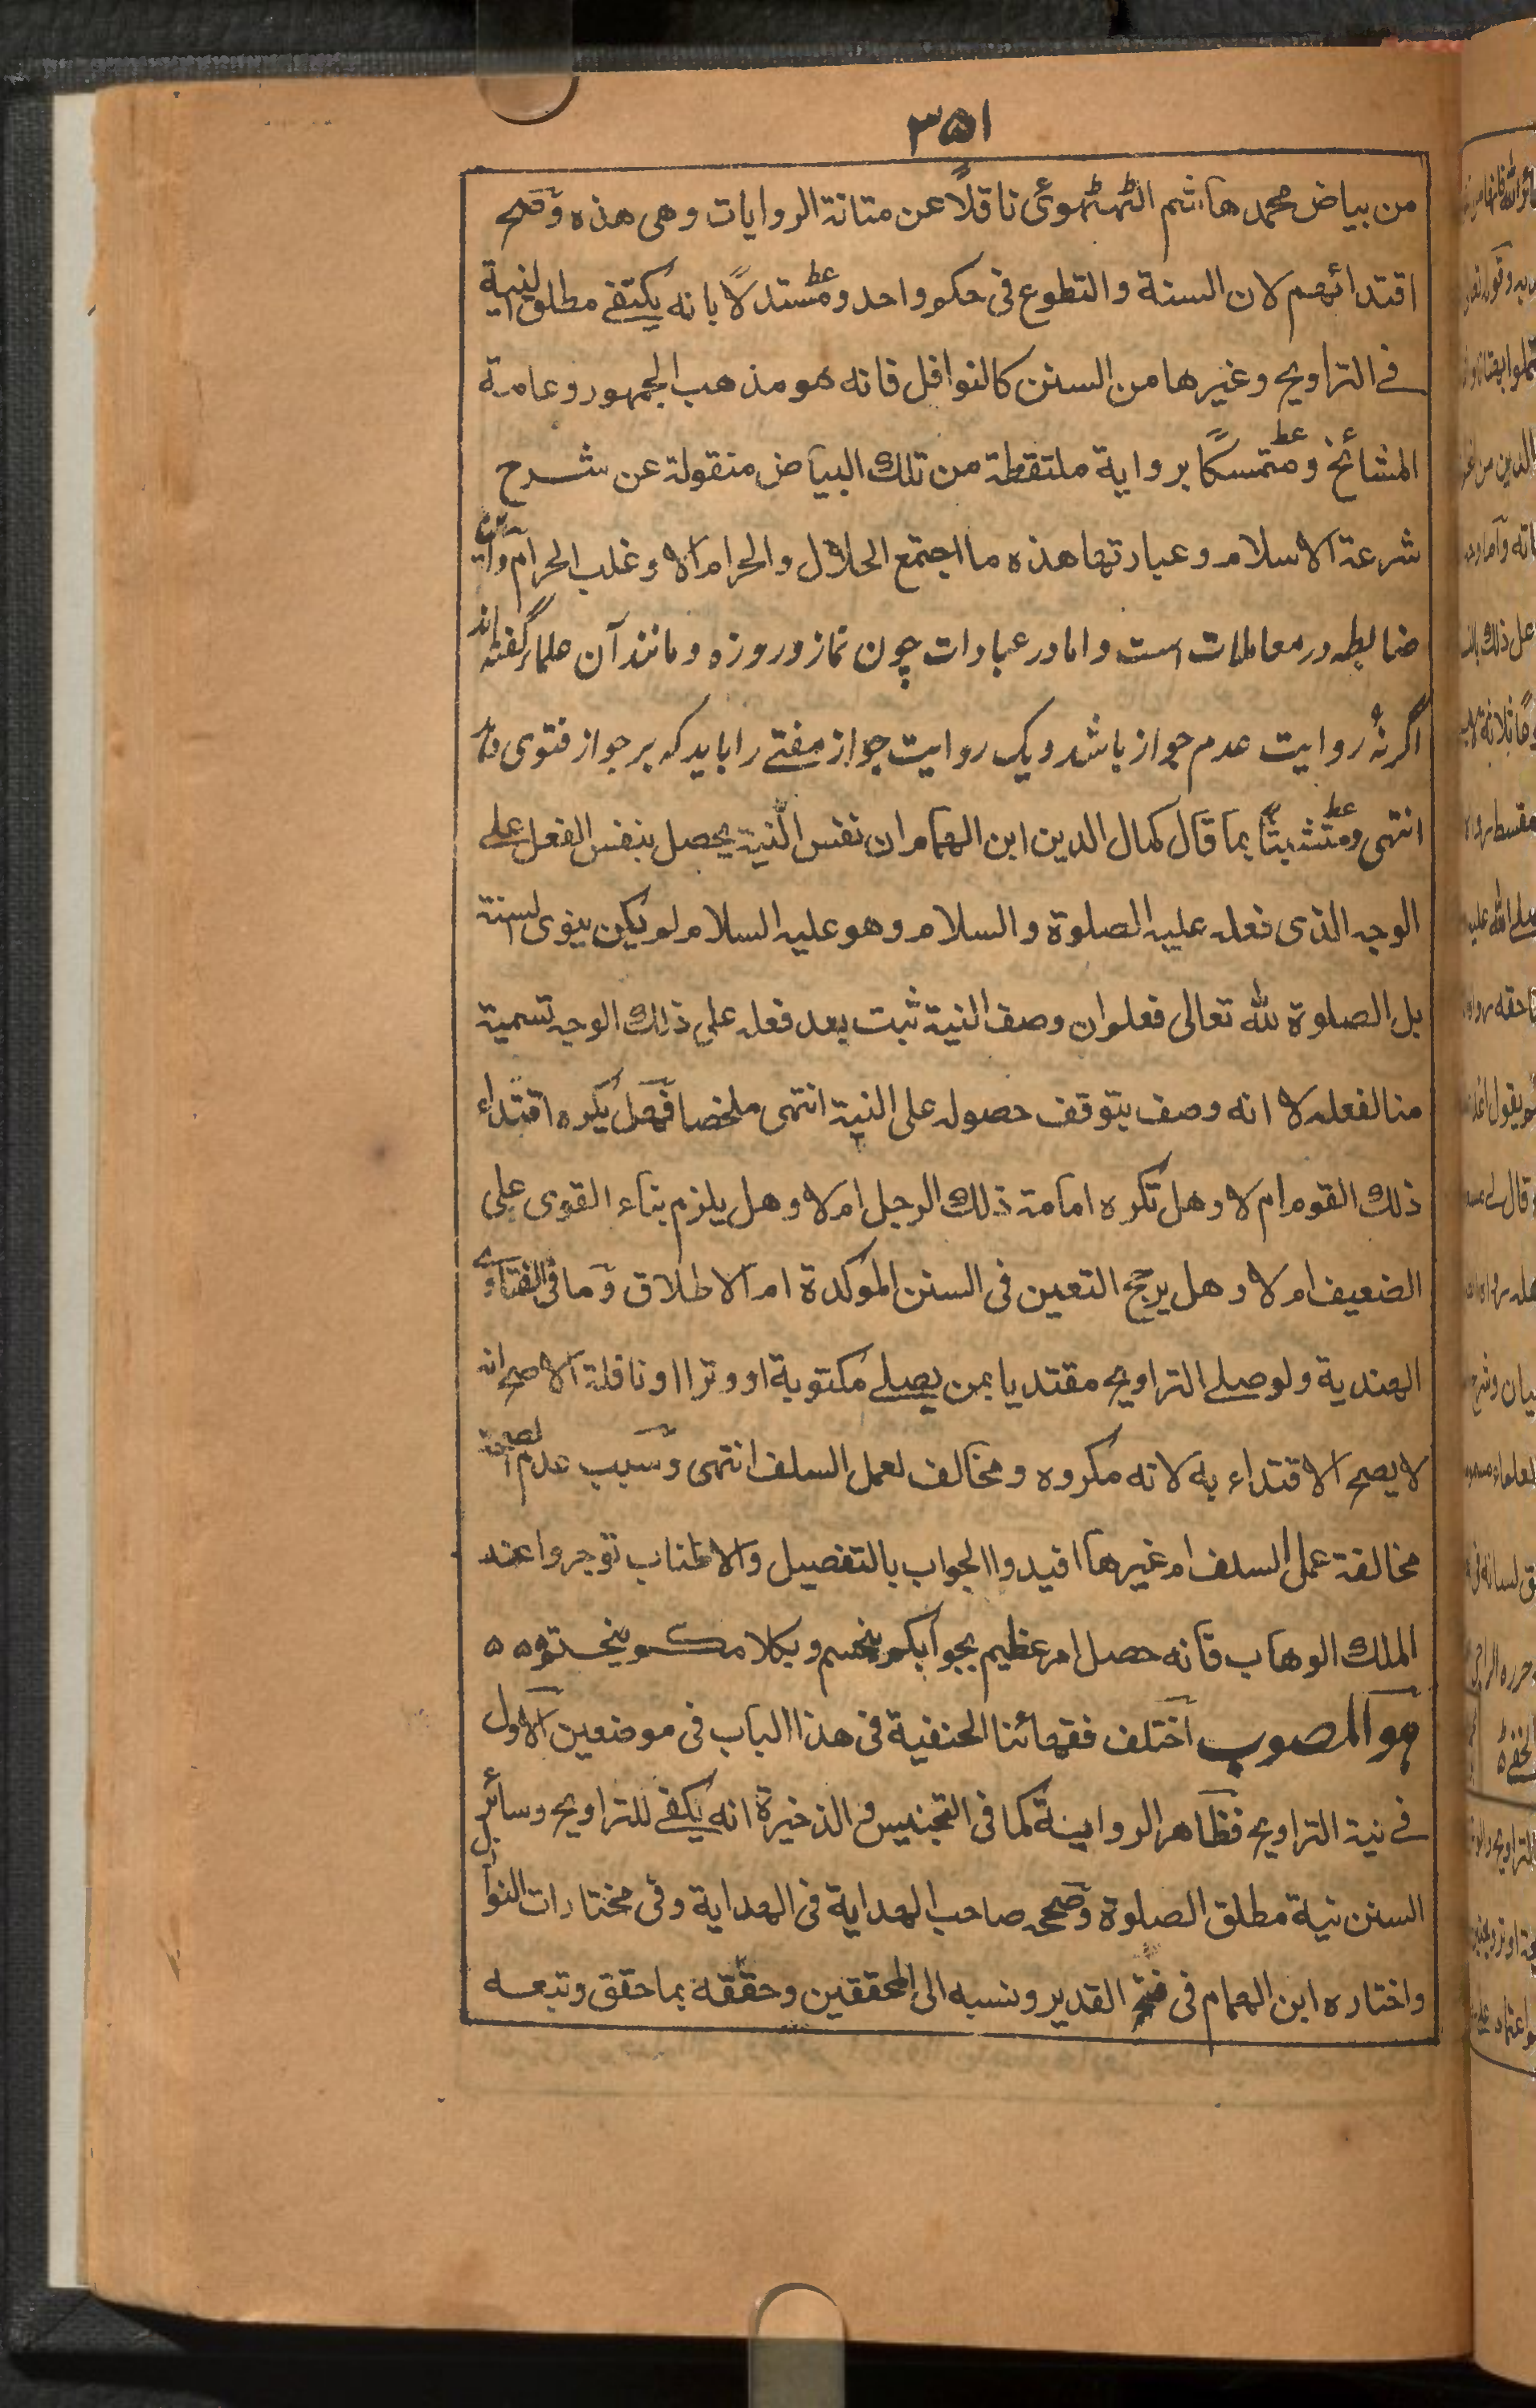 ٣٥١
من بياض محمد هاشم الٹهٹهوى ناقلاً عن متانة الروايات وهى هذه وتصح
اقتدائهم لان السنة والتطوع فى حكم واحد ومستدلاً بانه يكتفے مطلق النية
فے التراويح وغيرها من السنن كالنوافل فانه هو مذهب الجمهور وعامة
المشائخ ومتمسكاً برواية ملتقطة من تلك البياض منقولة عن شرح
شرعة الاسلام وعبارتها هذه ما اجتمع الحلال والحرام الا وغلب الحرام واين
ضابطه در معاملات است واما در عبادات چون نماز وروزه ومانند آن علماء گفته اند
اگر نُه روايت عدم جواز باشد ويک روايت جواز مفتے را بايد که بر جواز فتوى
انتهى ومتشبثاً بما قال كمال الدين ابن الهمام ان نفس النية يحصل بنفس الفعل علے
الوجه الذى فعله عليه الصلوة والسلام وهو عليه السلام لم يكن ينوى السنة
بل الصلوة لله تعالى فعلم ان وصف النية ثبت بعد فعله على ذلك الوجه تسمية
منا لفعله لا انه وصف يتوقف حصوله على النية انتهى ملخصا فهل يكره اقتداء
ذلك القوم ام لا وهل تكره امامة ذلك الرجل ام لا وهل يلزم بناء القوى على
الضعيف ام لا وهل يرجح التعين فى السنن الموكدة ام الاطلاق وما فى الفتاوے
الهندية ولو صلے التراويح مقتديا بمن يصلے مكتوبة او وترا او نافلة الاصح انه
لا يصح الاقتداء به لانه مكروه ومخالف لعمل السلف انتهى وسبب عدم الصحة
مخالفة عمل السلف ام غيرها افيدوا الجواب بالتفصيل والاطناب توجروا عند
الملك الوهاب فانه حصل امر عظيم بجوابكم ينحسم وبكلامكم ينختم ه ه
هو المصوب اختلف فقهائنا الحنفية فى هذا الباب فى موضعين الاول
فے نية التراويح فظاهر الرواية كما فى التجنيس والذخيرة انه يكفے للتراويح وسائر
السنن نية مطلق الصلوة وصححه صاحب الهداية فى الهداية وفى مختارات النوازل
واختاره ابن الهمام فى فتح القدير ونسبه الى المحققين وحققه بما حقق وتبعه